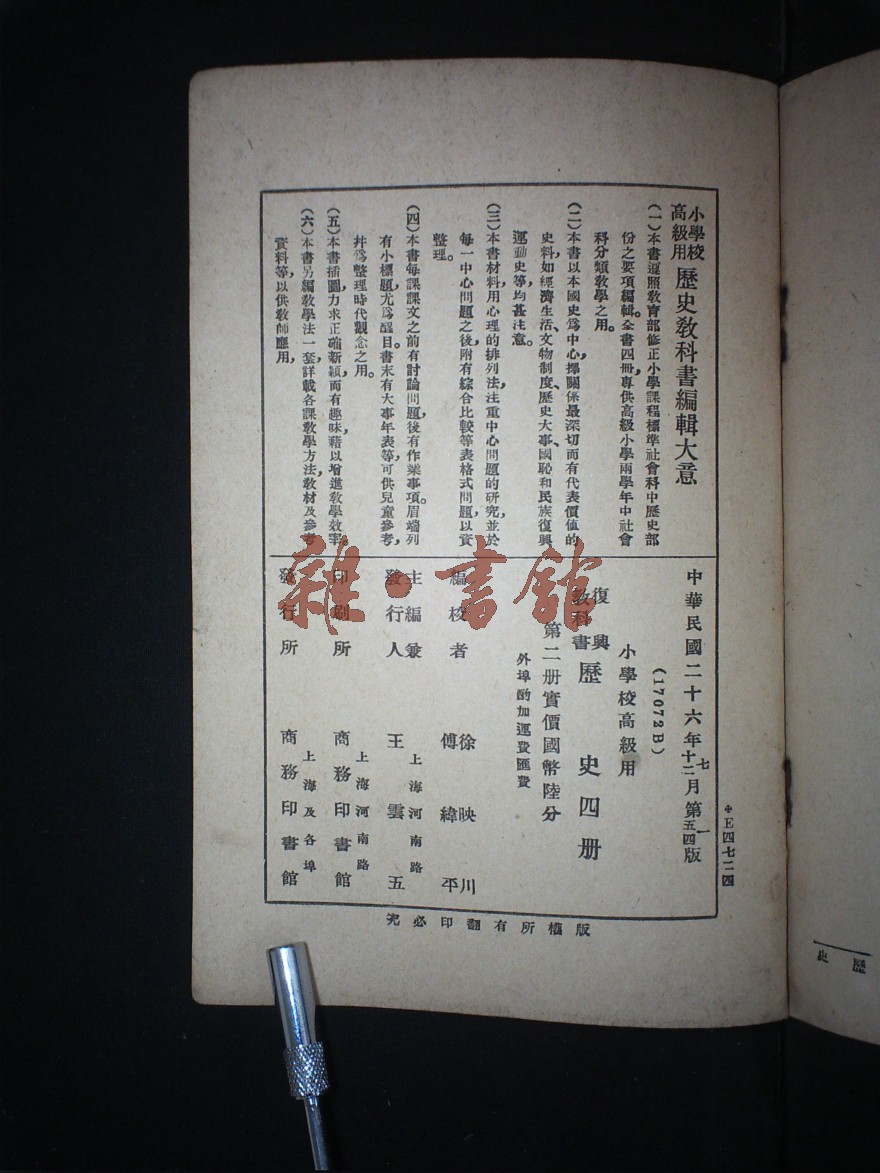 小學校
高級用
歷史教科書編輯大意
(一)本書遵照教育部修正小學課程標準社會科中歷史部
份之要項編輯。全書四冊,專供高級小學兩學年中社會
科分類教學之用。
(二)本書以本國史爲中心,擇關係最深切而有代表價值的
史料,如經濟生活、文物制度、歷史大事、國恥和民族復興
運動史等,均甚注意。
(三)本書材料用心理的排列法,注重中心問題的研究,並於
每一中心問題之後,附有綜合比較等表格式問題,以資
整理。
(四)本書每課課文之前有討論問題,後有作業事項。眉端列
有小標題,尤爲醒目。書末有大事年表等,可供兒童參考,
幷爲整理時代觀念之用。
(五)本書插圖,力求正確新穎,而有趣味,藉以增進教學效率。
(六)本書另編教學法一套,詳載各課教學方法,教材及參考
資料等,以供教師應用,
中華民國二十六年七月第一版
十二 五四
(17072B)
小學校高級用
復興
教科書
歷史四册
第二册實價國幣陸分
外埠酌加運費匯費
編校者 徐映川
傅緯平
主編兼
發行人 王雲五
上海河南路
印刷所 商務印書館
上海河南路
發行所 商務印書館
上海及各埠
版權所有翻印必究
*E四七二四
雜·書館
歷史